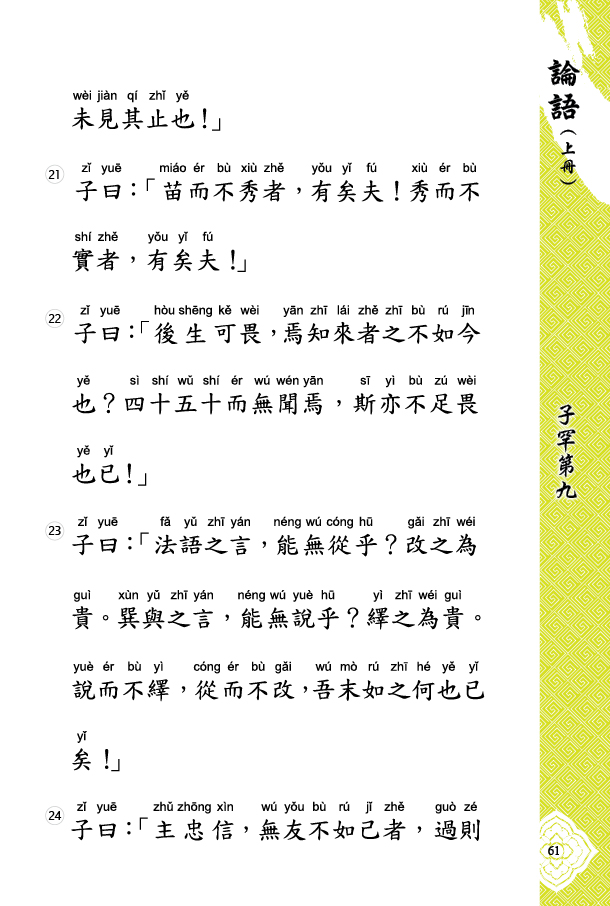 wèi jiàn qí zhǐ yě
未見其止也！」
zǐ yuē miáo ér bù xiù zhě yǒu yǐ fú xiù ér bù
21 子曰：「苗而不秀者，有矣夫！秀而不
shí zhě yǒu yǐ fú
實者，有矣夫！」
zǐ yuē hòu shēng kě wèi yān zhī lái zhě zhī bù rú jīn
22 子曰：「後生可畏，焉知來者之不如今
yě sì shí wǔ shí ér wú wén yān sī yì bù zú wèi
也？四十五十而無聞焉，斯亦不足畏
yě yǐ
也已！」
zǐ yuē fǎ yǔ zhī yán néng wú cóng hū gǎi zhī wéi
23 子曰：「法語之言，能無從乎？改之為
guì xùn yǔ zhī yán néng wú yuè hū yì zhī wéi guì
貴。巽與之言，能無說乎？繹之為貴。
yuè ér bù yì cóng ér bù gǎi wú mò rú zhī hé yě yǐ
說而不繹，從而不改，吾末如之何也已
yǐ
矣！」
zǐ yuē zhǔ zhōng xìn wú yǒu bù rú jǐ zhě guò zé
24 子曰：「主忠信，無友不如己者，過則
論語（上冊）
子罕第九
61